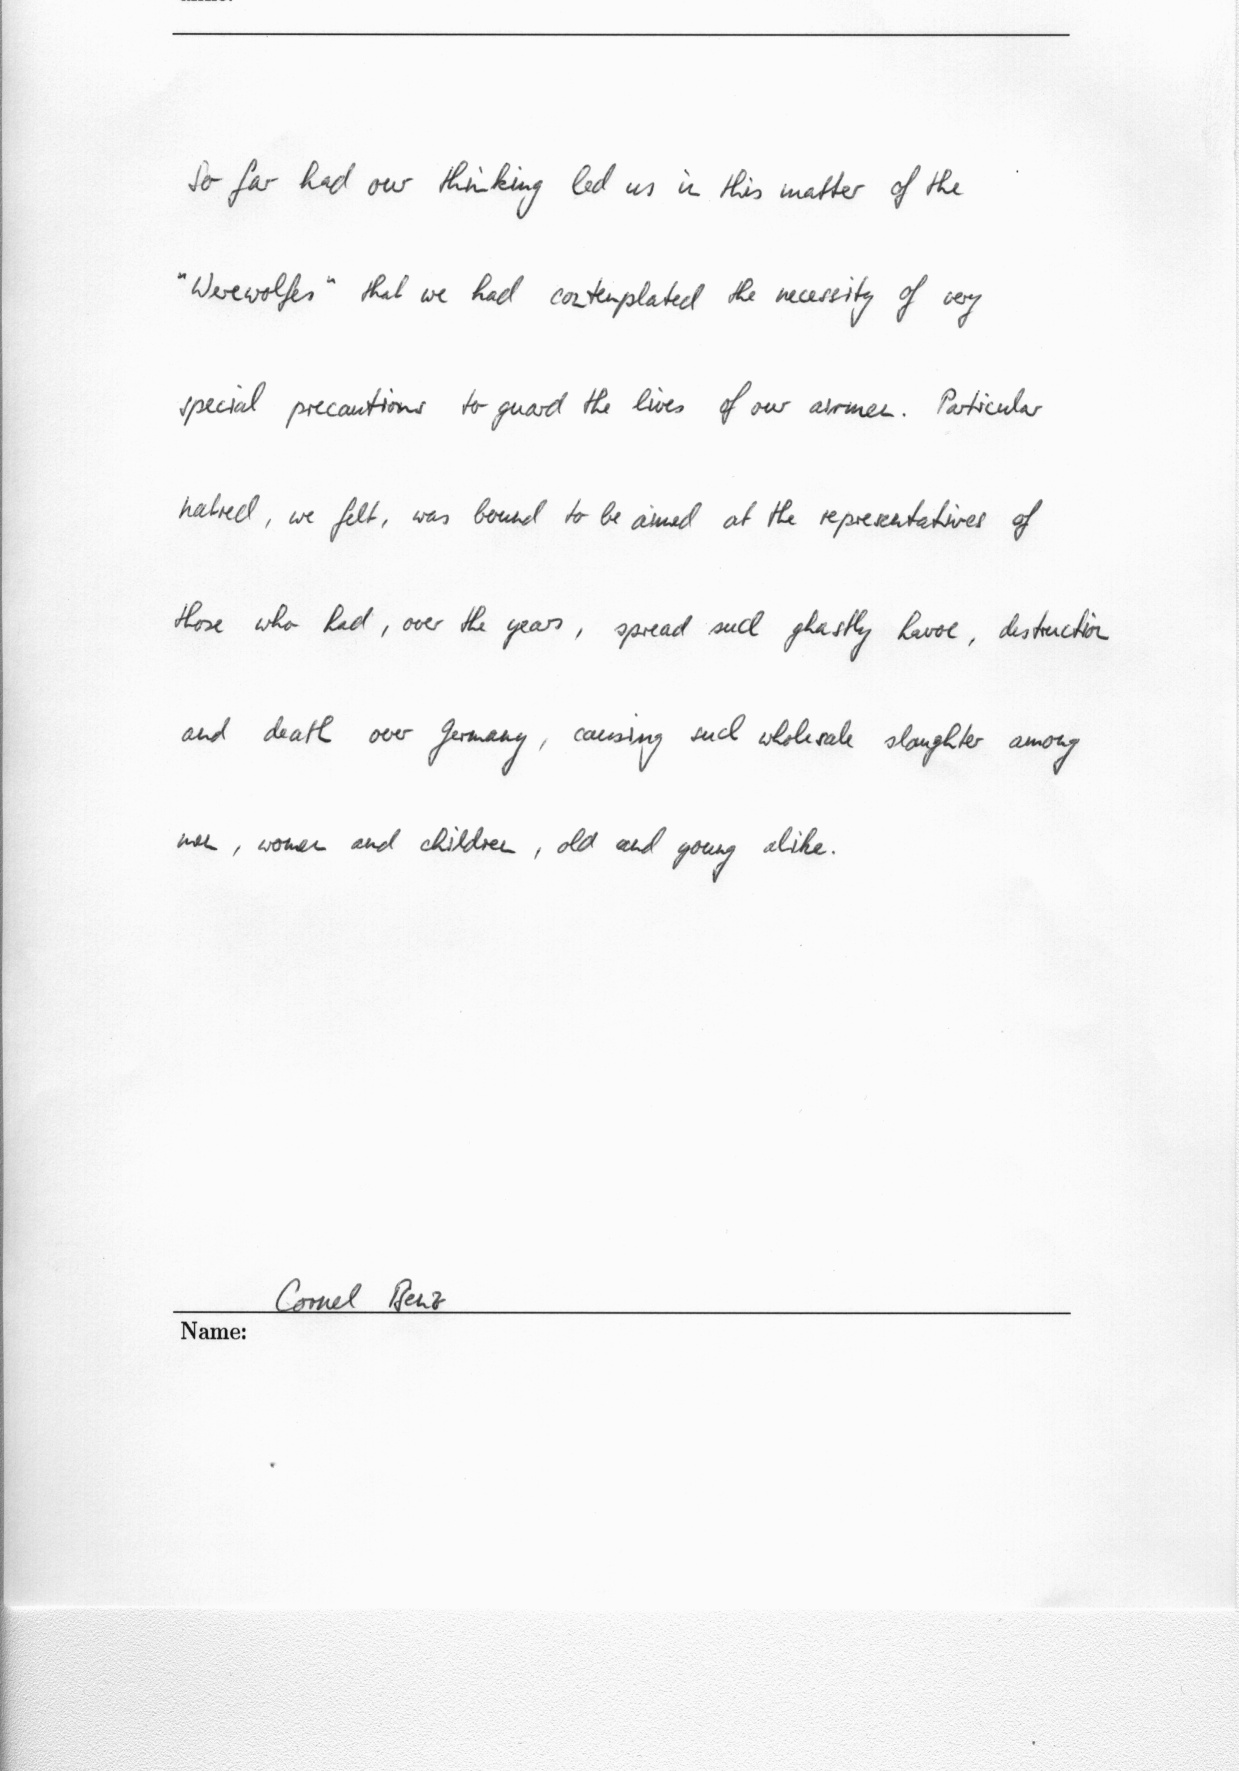 So far had our thinking led us in this matter of the
"Werewolfes" that we had contemplated the necessity of very
special precautions to guard the lives of our airmen. Particular
hatred, we felt, was bound to be aimed at the representatives of
those who had, over the years, spread such ghastly havoc, destruction
and death over Germany, causing such wholesale slaughter among
men, women and children, old and young alike.
Cornel Benz
Name: